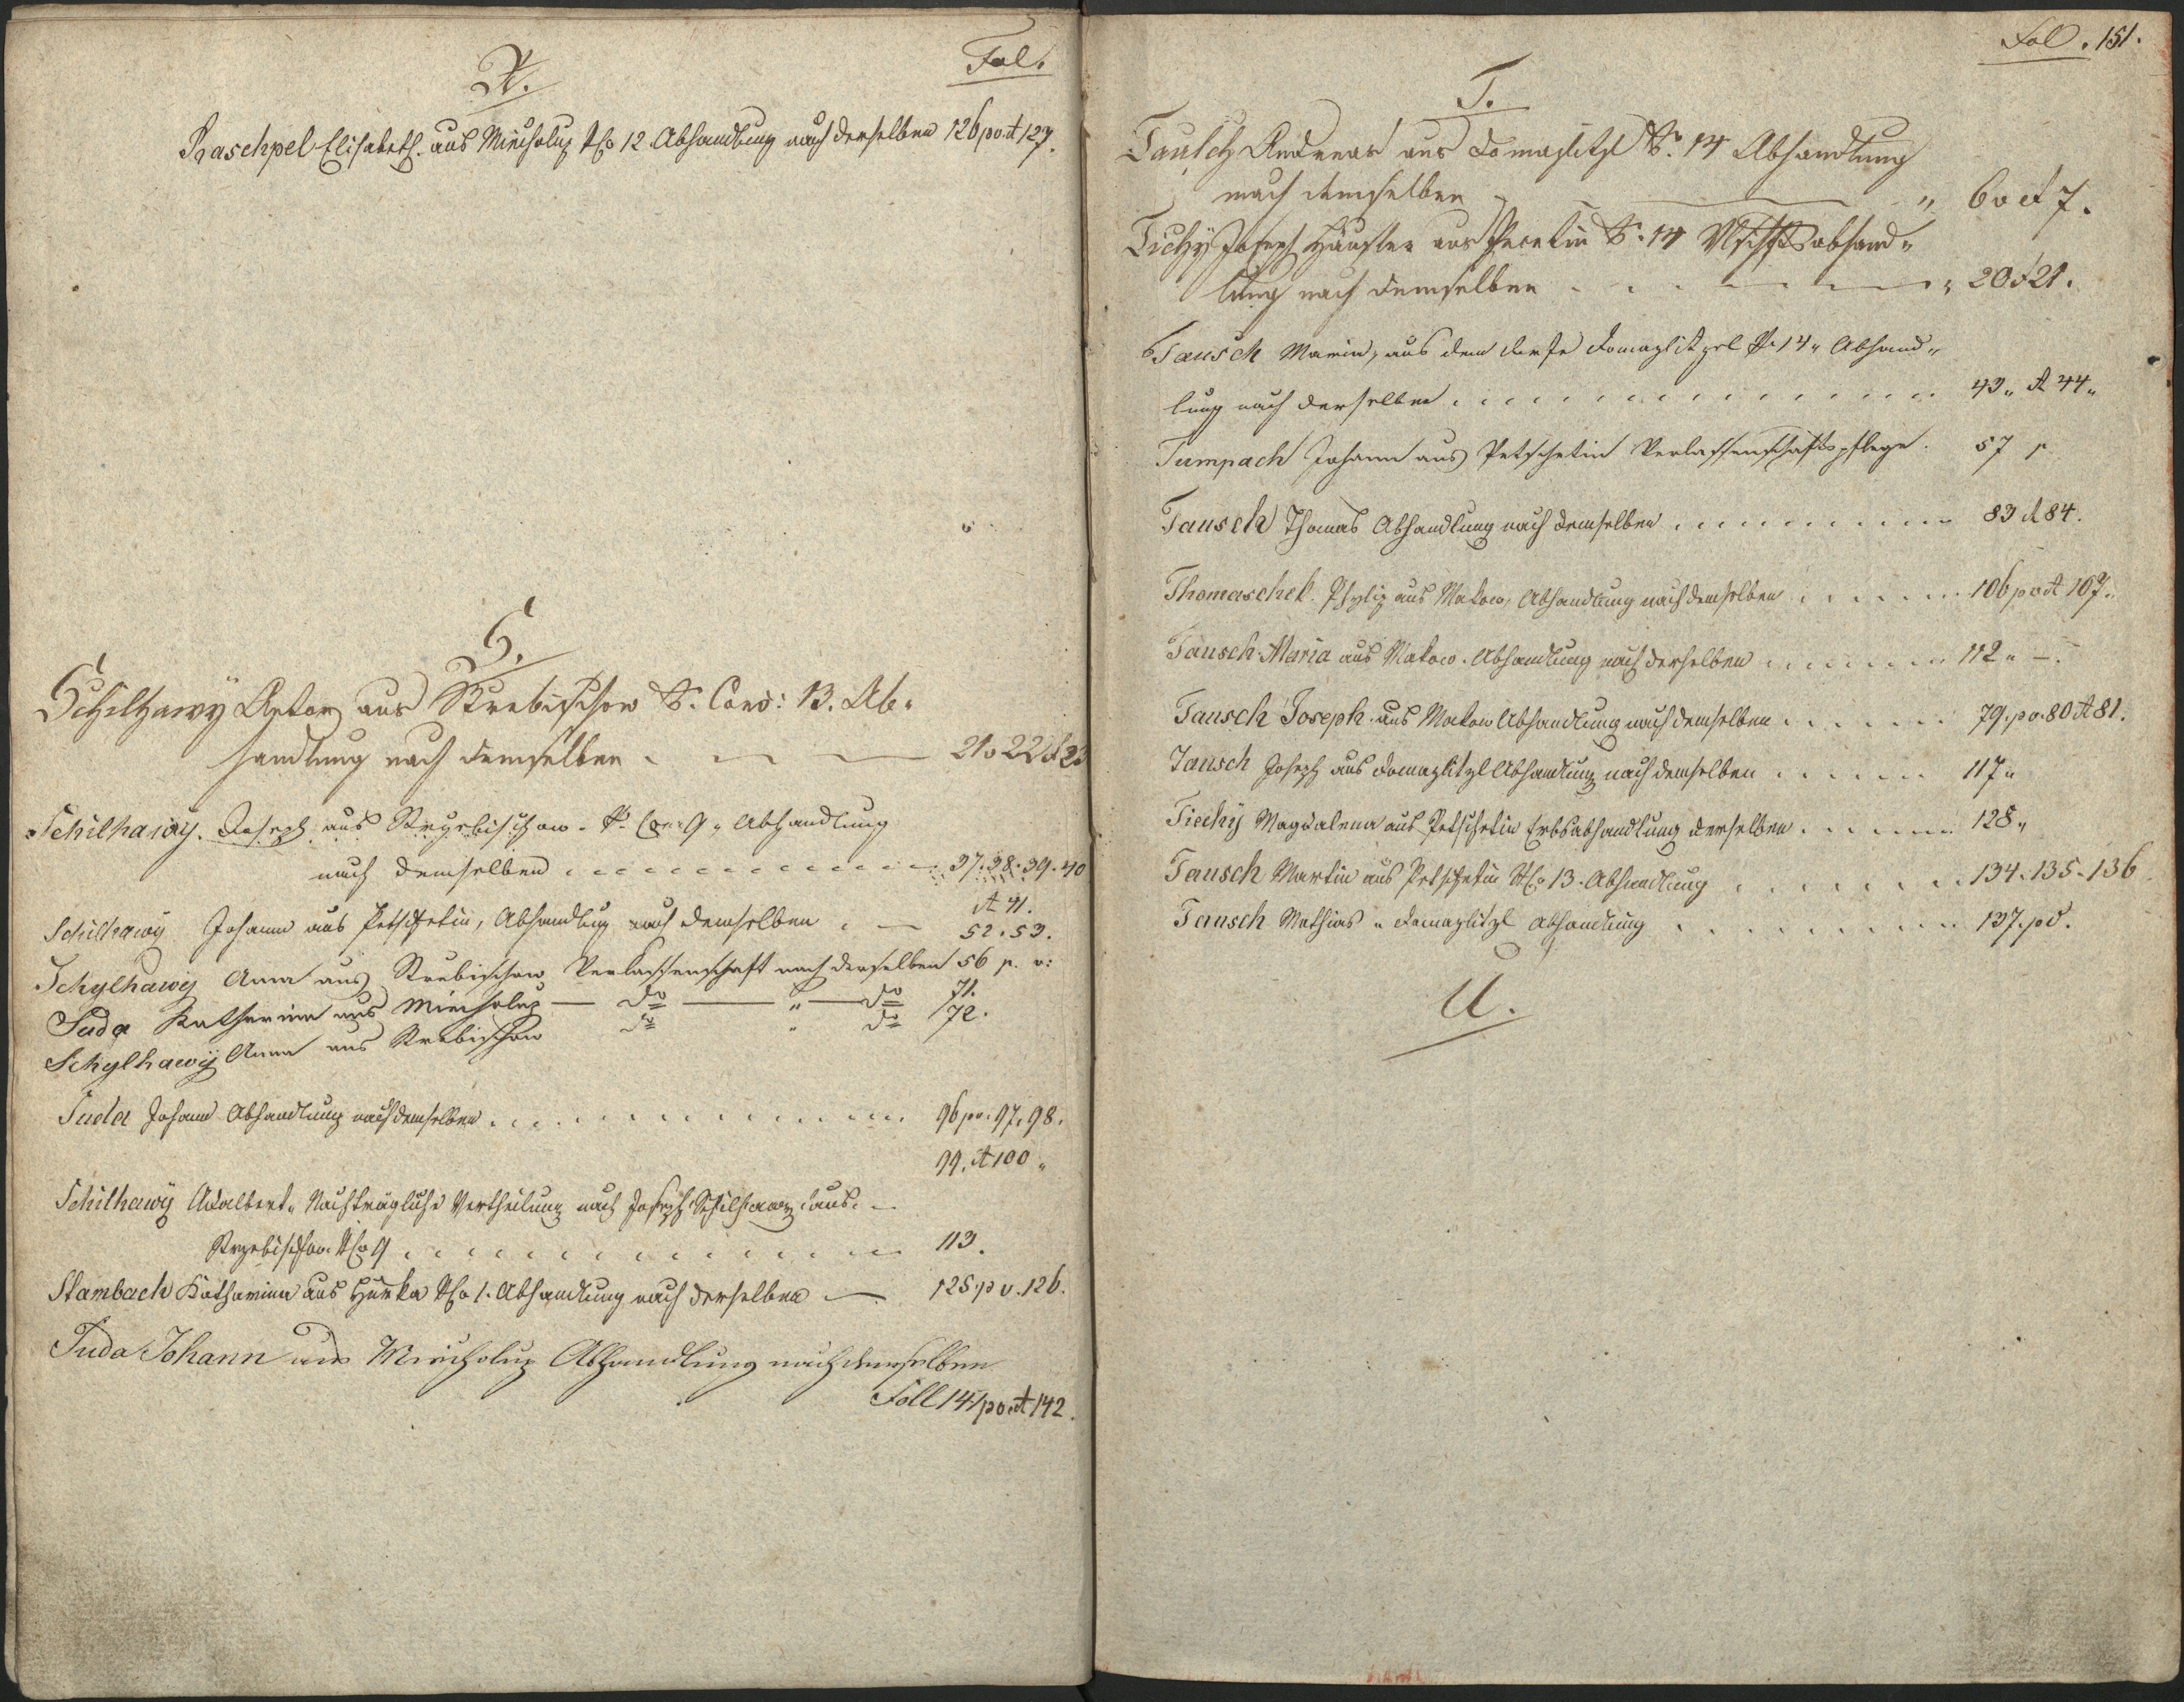 Fol.
R.
Raschpel Elisabeth. aus Miecholup NCo 12 Abhandlung nach derselben 126 po et 127.
S.
Schilhawy Anton aus Strebischow N. Cons: 13. Ab-
handlung nach demselben 21 v 22 et 23
Schilhawy. Joseph aus Strzebischow. N. Con: 9 „ Abhandlung
nach demselben 37. 38. 39. 40
et 41.
Schilhawy Johann aus Petschetin, Abhandlung nach demselben 52. 53.
Schylhawy Anna aus Strebischow Verlassenschaft nach derselben 56 p. v:
Suda Katharina aus Miecholup — do — " — do 71.
Schylhawy Anna aus Strebischow do " do 72.
Suda Johann Abhandlung nach demselben 96 pv. 97. 98.
99. et 100 „
Schilhawy Adalbert „ Nachträgliche Vertheilung nach Joseph Schilhawy aus
Strzebischow NCo 9 113.
Stambach Katharina aus Hurka NCo 1. Abhandlung nach derselben — 125 p v. 126.
Suda Johann aus Miecholup Abhandlung nach demselben
Foll 141 po et 142.
Fol. 151.
T.
Tausch Andreas aus Domazlitzl N. 14 Abhandlung
nach demselben " 6 v et 7.
Tichy Joseph Häusler aus N. 14
lung nach demselben 20 et 21.
Tausch Maria, aus dem Dorfe Domazlitzel N. 14 „ Abhand„
lung nach derselben 43 „ et 44 „
Tumpach Johann aus Petschetin Verlassenschaftspflege. 57 p
Tausch Thomas Abhandlung nach demselben 83 et 84.
Thomaschek. Phylip aus Makow, Abhandlung nach demselben 106 po et 107.
Tausch Maria aus Makow. Abhandlung nach derselben 112 „ —.
Tausch Joseph aus Makow Abhandlung nach demselben 79. pv. 80 et 81.
Tausch Joseph aus Domazlitzl Abhandlung nach demselben 117 „
Tiechy Magdalena aus Petschetin Erbsabhandlung derselben 128 „
Tausch Martin aus Petschetin NCo 13. Abhandlung 134. 135. 136
Tausch Mathias „ Domazlitzl Abhandlung 137. po.
U.